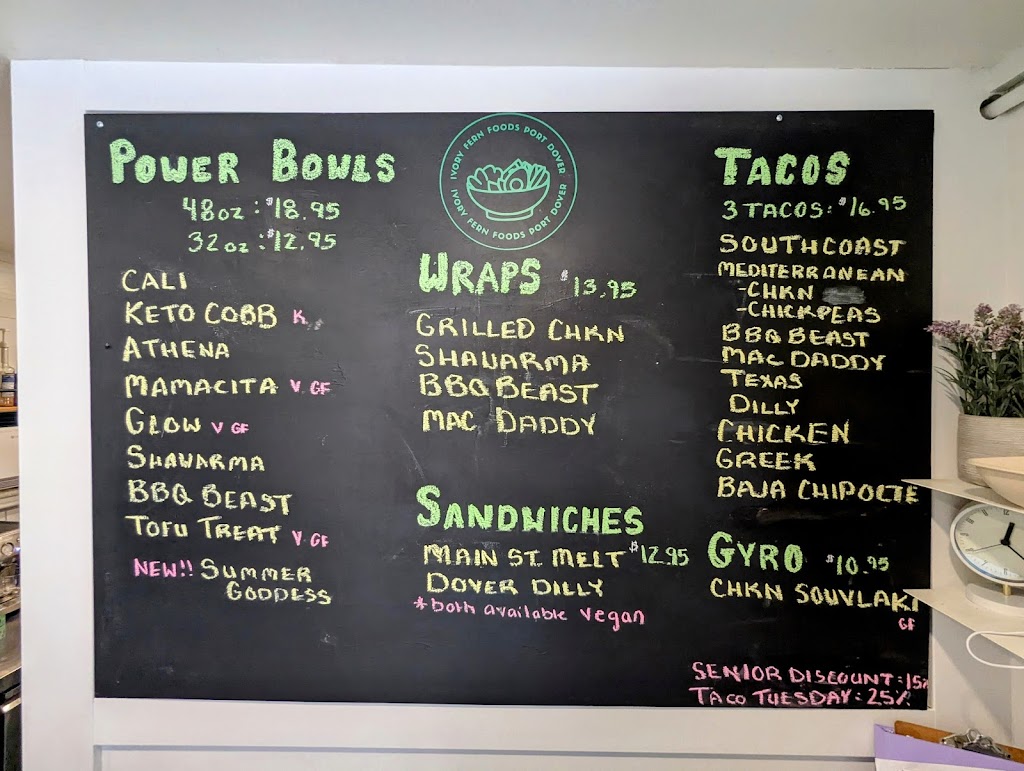 POWER BOWLS
48oz: $18.95
32oz: $12.95
CALI
KETO COBB K
ATHENA
MAMACITA V GF
GLOW V GF
SHAWARMA
BBQ BEAST
TOFU TREAT V GF
NEW!! SUMMER
GODDESS
IVORY FERN FOODS PORT DOVER
IVORY FERN FOODS PORT DOVER
WRAPS $13.95
GRILLED CHKN
SHAWARMA
BBQ BEAST
MAC DADDY
SANDWICHES
MAIN ST. MELT $12.95
DOVER DILLY
*both available vegan
TACOS
3 TACOS: $16.95
SOUTHCOAST
MEDITERRANEAN
-CHKN
-CHICKPEAS
BBQ BEAST
MAC DADDY
TEXAS
DILLY
CHICKEN
GREEK
BAJA CHIPOLTE
GYRO $10.95
CHKN SOUVLAKI
GF
SENIOR DISCOUNT: 15%
TACO TUESDAY: 25%